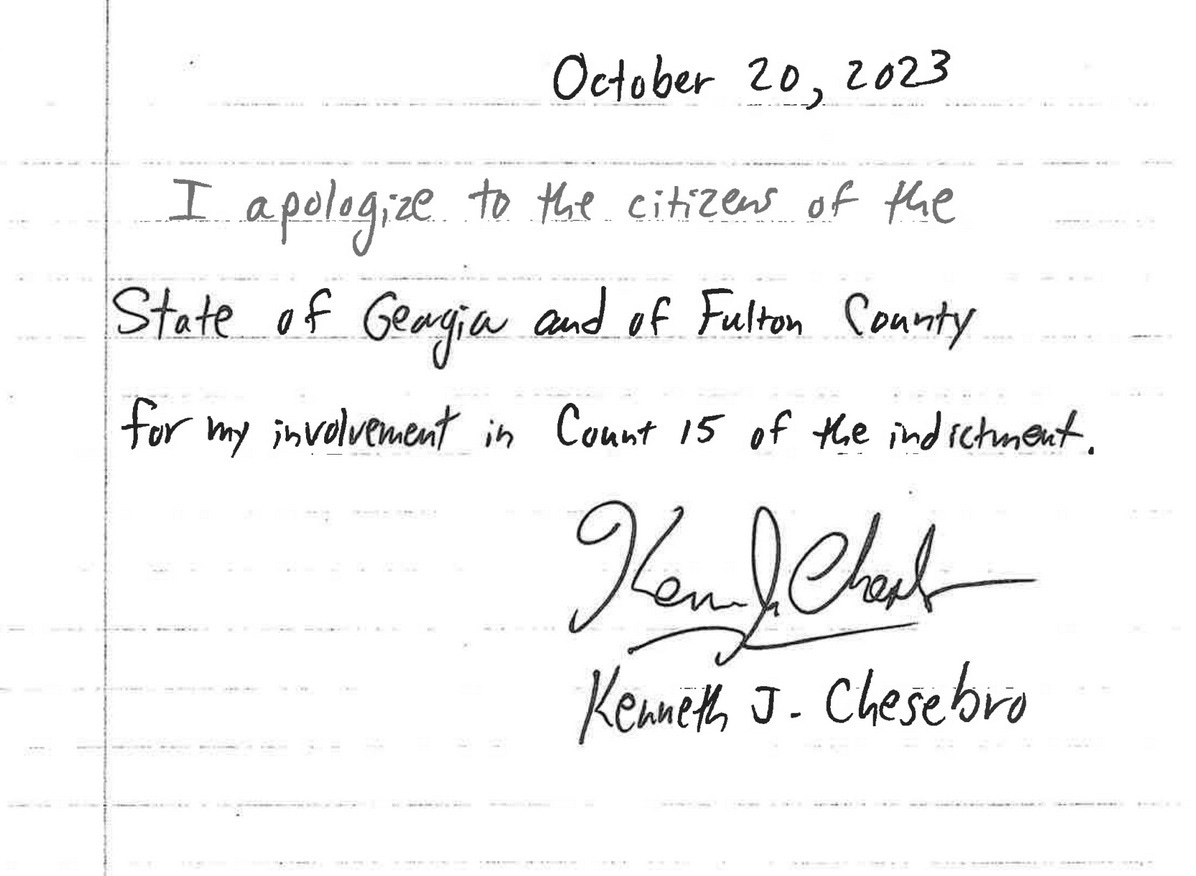 October 20, 2023
I apologize to the citizens of the
State of Georgia and of Fulton County
for my involvement in Count 15 of the indictment.
Ken J. Chesebro
Kenneth J. Chesebro